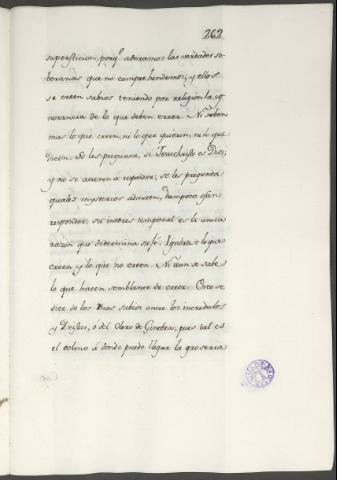 262
supersticion, porq.e adoramos las verdades so-
beranas que no comprehendemos; y ellos
se creen sabios teniendo por religion la ig-
norancia de lo que deben creer. Ni saben
mas lo que creen, ni lo que quieren, ni lo que
dicen. Se les pregunta, si Jesuchristo es Dios;
y no se atreven a responder; se les pregunta
quales mysterios admiten, tampoco osan
responder: su interes temporal es la unica
razon que determina su fé. Ignorase lo que
creen, y lo que no creen. Ni aun se sabe
lo que hacen semblante de creer. Esto se
dice de los mas sabios entre los incredulos
y Deistas, ó del Clero de Ginebra; pues tal es
el colmo á donde puede llegar la groseria